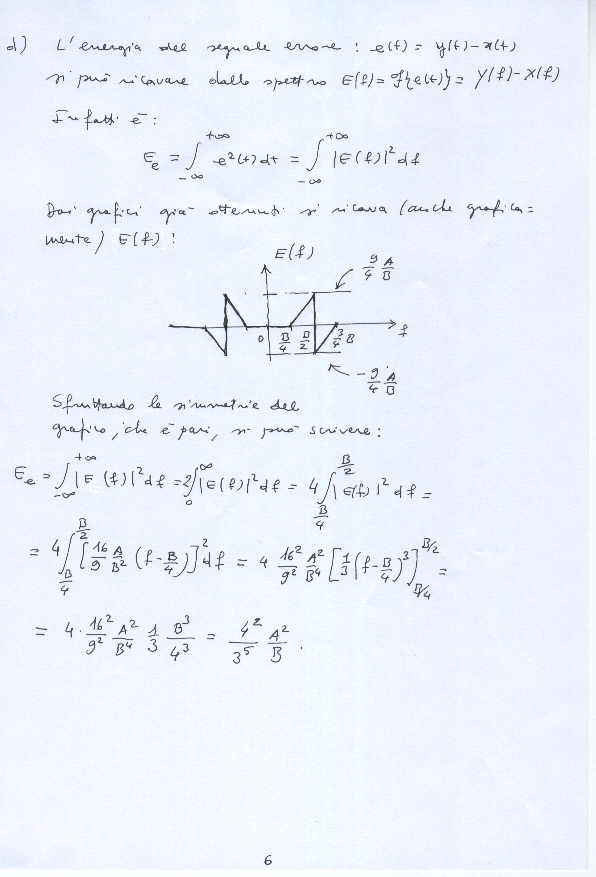 d) L'energia del segnale errore : e(t) = y(t) - x(t)
si può ricavare dallo spettro E(f) = F{e(t)} = Y(f) - X(f)
Infatti è :
E_e = ∫_{-∞}^{+∞} e²(t) dt = ∫_{-∞}^{+∞} |E(f)|² df
Dai grafici già ottenuti si ricava (anche grafica=
mente) E(f) :
E(f)
9/4 A/B
0 B/4 B/2 3/4 B f
- 9/4 A/B
Sfruttando le simmetrie del
grafico, che è pari, si può scrivere :
E_e = ∫_{-∞}^{+∞} |E(f)|² df = 2∫_0^∞ |E(f)|² df = 4 ∫_{B/4}^{B/2} |E(f)|² df =
= 4 ∫_{B/4}^{B/2} [16/9 A/B² (f - B/4)]² df = 4 16²/9² A²/B⁴ [1/3 (f - B/4)³]_{B/4}^{B/2} =
= 4 · 16²/9² A²/B⁴ 1/3 B³/4³ = 4²/3⁵ A²/B .
6